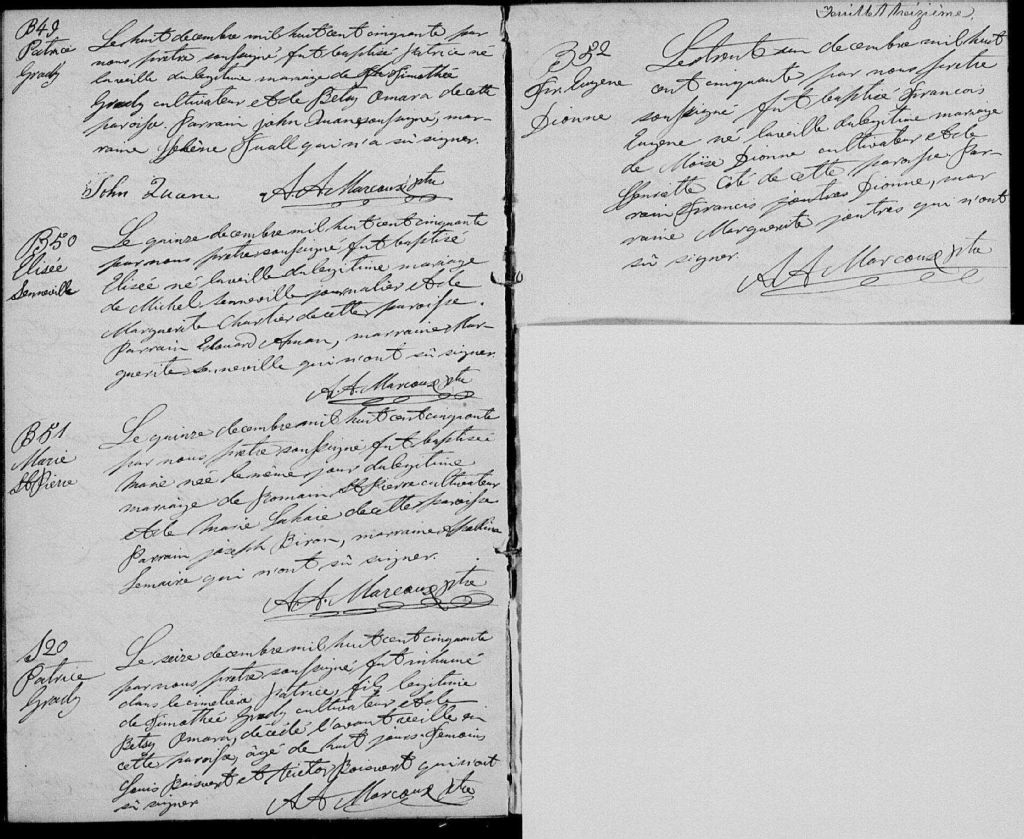 B49
Patrice
Grady
Le huit decembre mil huit cent cinquante par
nous prêtre soussigné fut baptisé Patrice né
la veille du legitime mariage de Timothée
Grady cultivateur et de Betsy Omara de cette
paroisse. Parrain John Quane soussigné, mar-
raine Hélène qui n'a su signer.
John Quane
A A Marcoux ptre
B50
Elisée
Senneville
Le quinze decembre mil huit cent cinquante
par nous prêtre soussigné, fut baptisé
Elisée né la veille du legitime mariage
de Michel Senneville journalier et de
Marguerite Chartier de cette paroisse.
Parrain Edouard, marraine Mar-
guerite Senneville qui n'ont sû signer.
A. A. Marcoux ptre
B51
Marie
St Pierre
Le quinze decembre mil huit cent cinquante
par nous prêtre soussigné fut baptisée
Marie née le même jour du legitime
mariage de Romain St Pierre cultivateur
et de Marie Lahaie de cette paroisse
Parrain joseph Biron, marraine
Lemaire qui n'ont sû signer.
A. A. Marcoux ptre
S20
Patrice
Grady
Le seize decembre mil huit cent cinquante
par nous prêtre soussigné, fut inhumé
dans le cimetière Patrice, fils legitime
de Timothée Grady cultivateur et de
Betsy Omara, décédé l'avant veille en
cette paroisse, âgé de huit jours. Temoins
Louis Boisvert et Victor Boisvert qui n'ont
sû signer
A A Marcoux ptre
Feuillet treizième.
B52
Frs. Eugene
Dionne
Le trent un decembre mil huit
cent cinquante par nous prêtre
soussigné fut baptisé Francois
Eugene né la veille du legitime mariage
de Moïse Dionne cultivateur et de
Henriette Coté de cette paroisse. Par-
rain Francis joutras Dionne, mar
raine Marguerite joutras qui n'ont
sû signer.
A A Marcoux ptre